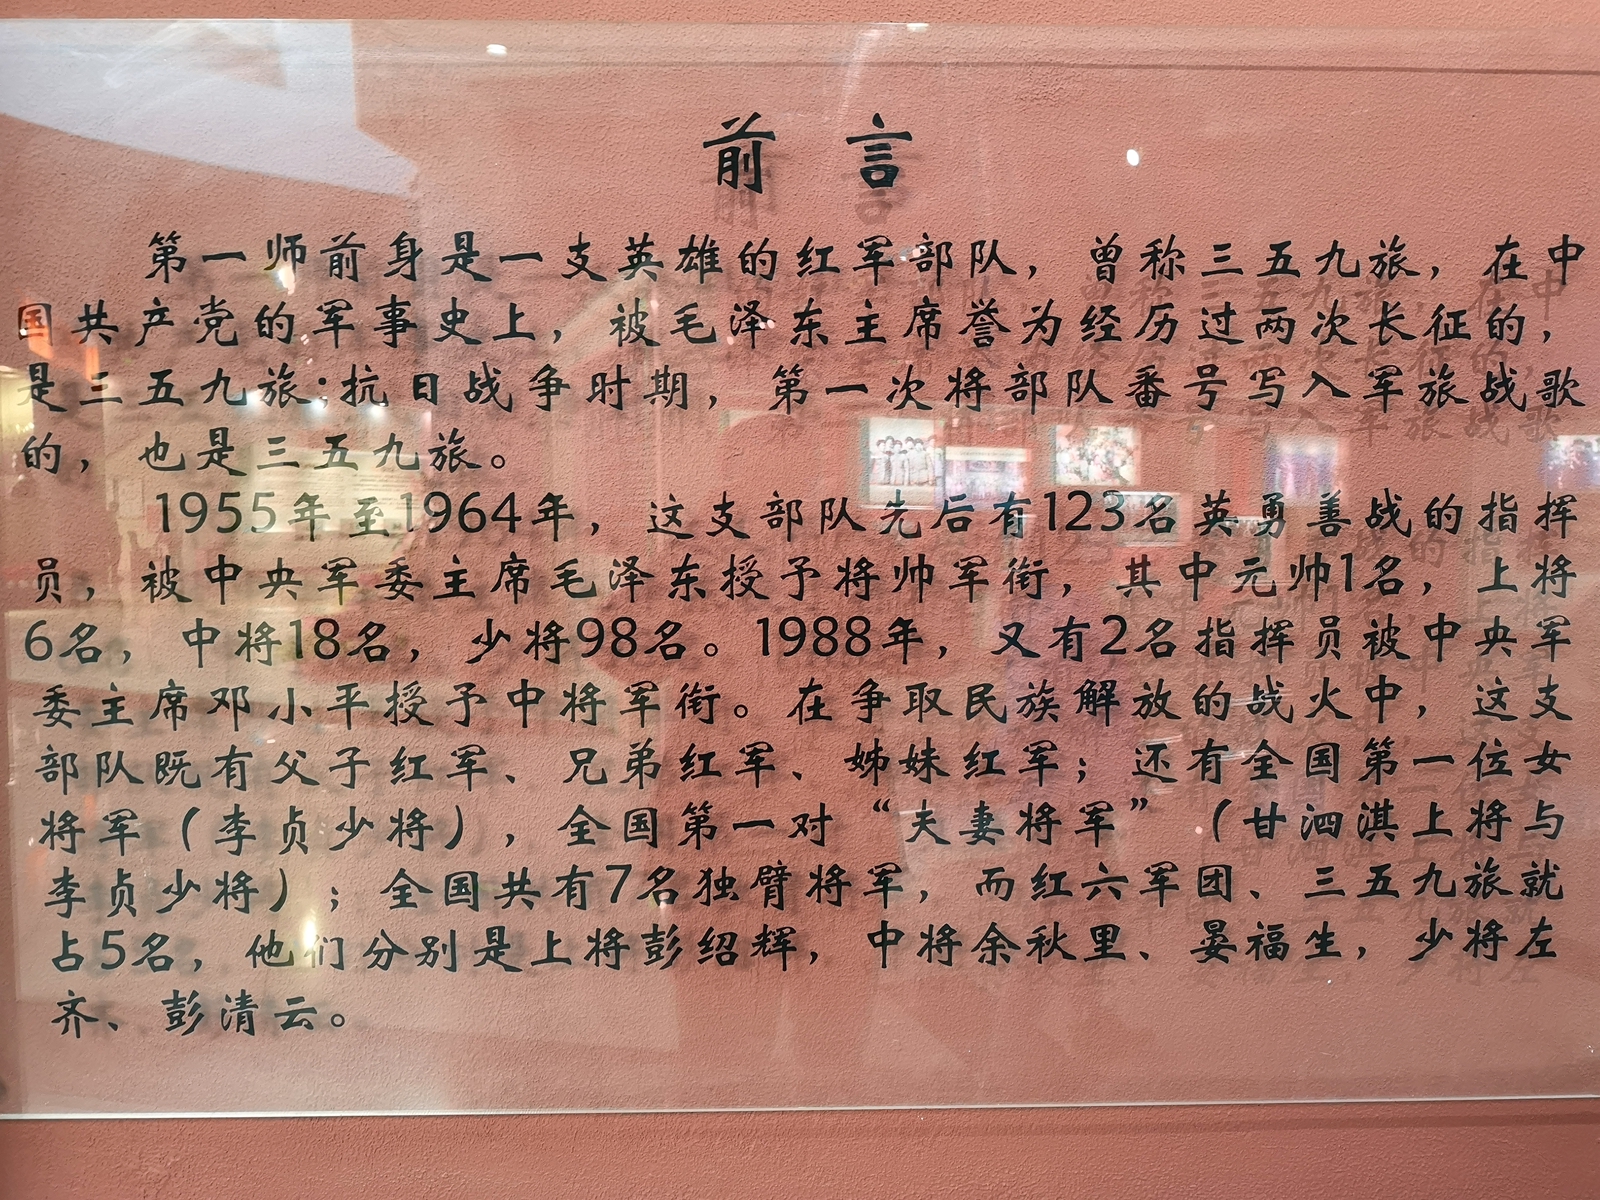 前言
第一师前身是一支英雄的红军部队，曾称三五九旅，在中
国共产党的军事史上，被毛泽东主席誉为经历过两次长征的，
是三五九旅；抗日战争时期，第一次将部队番号写入军旅战歌
的，也是三五九旅。
1955年至1964年，这支部队先后有123名英勇善战的指挥
员，被中央军委主席毛泽东授予将帅军衔，其中元帅1名，上将
6名，中将18名，少将98名。1988年，又有2名指挥员被中央军
委主席邓小平授予中将军衔。在争取民族解放的战火中，这支
部队既有父子红军、兄弟红军、姊妹红军；还有全国第一位女
将军（李贞少将），全国第一对“夫妻将军”（甘泗淇上将与
李贞少将）；全国共有7名独臂将军，而红六军团、三五九旅就
占5名，他们分别是上将彭绍辉，中将余秋里、晏福生，少将左
齐、彭清云。